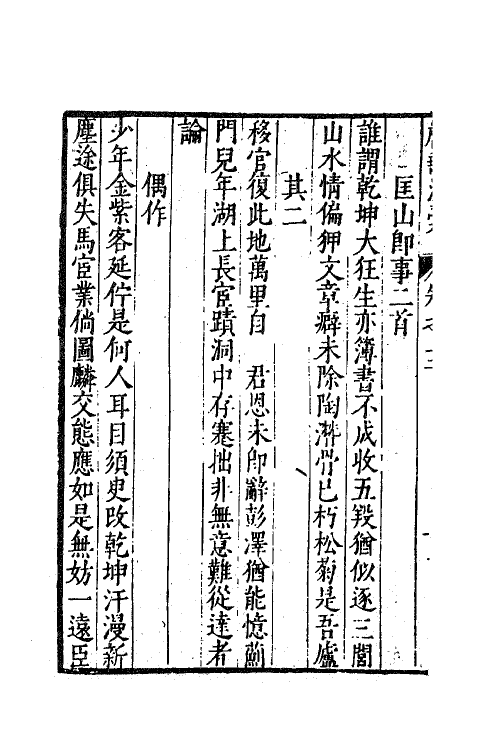 匡山即事二首
誰謂乾坤大狂生亦簿書不成收五羖猶似逐三閭
山水情偏狎文章癖未除陶潛骨已朽松菊是吾廬
其二
移官復此地萬里自　君恩未即辭彭澤猶能憶薊
門兒年湖上長宦蹟洞中存蹇拙非無意難從達者
論
偶作
少年金紫客延佇是何人耳目須臾改乾坤汗漫新
塵途俱失馬宦業倘圖麟交態應如是無妨一遠臣